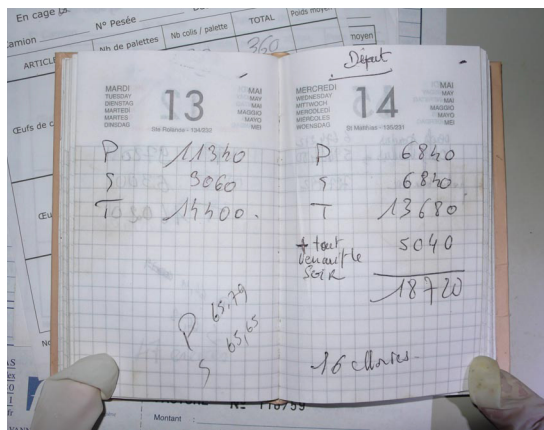 En cage
N° Pesée
camion
Nb de palettes
Nb colis / palette
TOTAL
Poids moyen
360
moyen
ARTICLE
Œufs de c
MARDI
TUESDAY
DIENSTAG
MARTEDI
MARTES
DINSDAG
13
MAI
MAY
MAI
MAGGIO
MAYO
MEI
Ste Rolande - 134/232
P 11340
S 3060
T 14400.
P 65,79
S 65,65
Départ
MERCREDI
WEDNESDAY
MITTWOCH
MERCOLEDI
MIERCOLES
WOENSDAG
14
MAI
MAY
MAI
MAGGIO
MAYO
MEI
St Matthias - 135/231
P 6840
S 6840
T 13680
+ tout 5040
venant le
soir
18720
16
N° 118759
Montant :